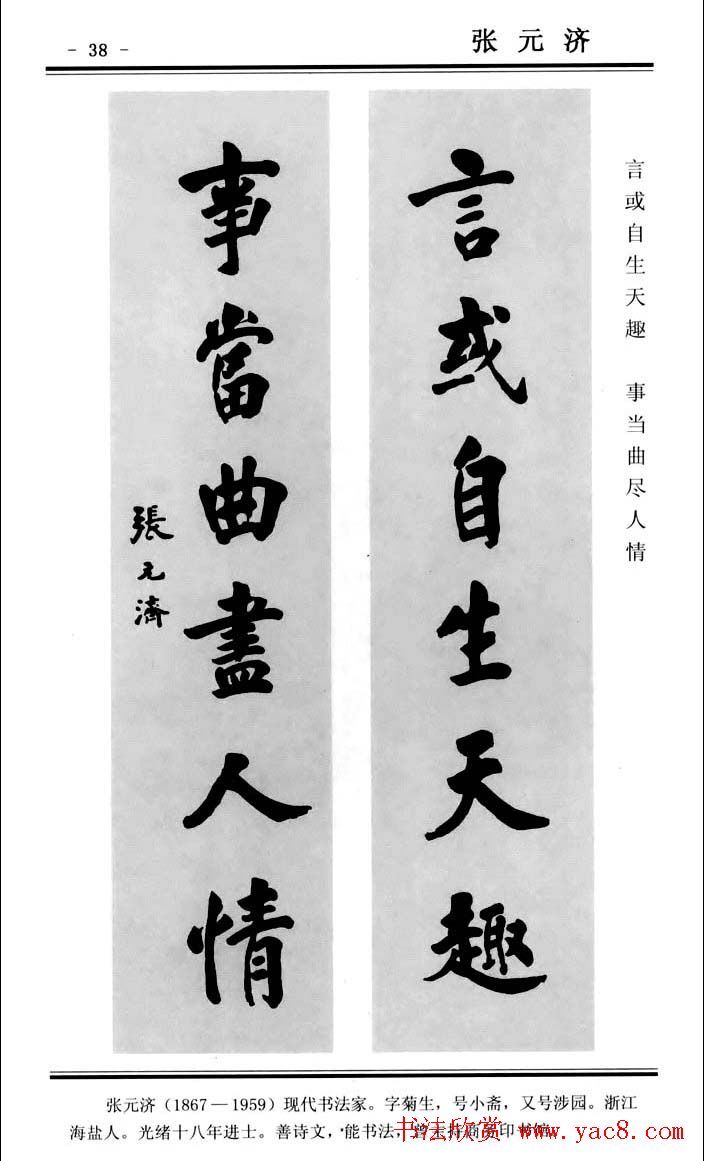 - 38 -
张元济
言或自生天趣
事當曲盡人情
張元濟
言或自生天趣 事当曲尽人情
张元济（1867—1959）现代书法家。字菊生，号小斋，又号涉园。浙江
海盐人。光绪十八年进士。善诗文，能书法，曾主持商务印书馆。
书法欣赏 www.yac8.com